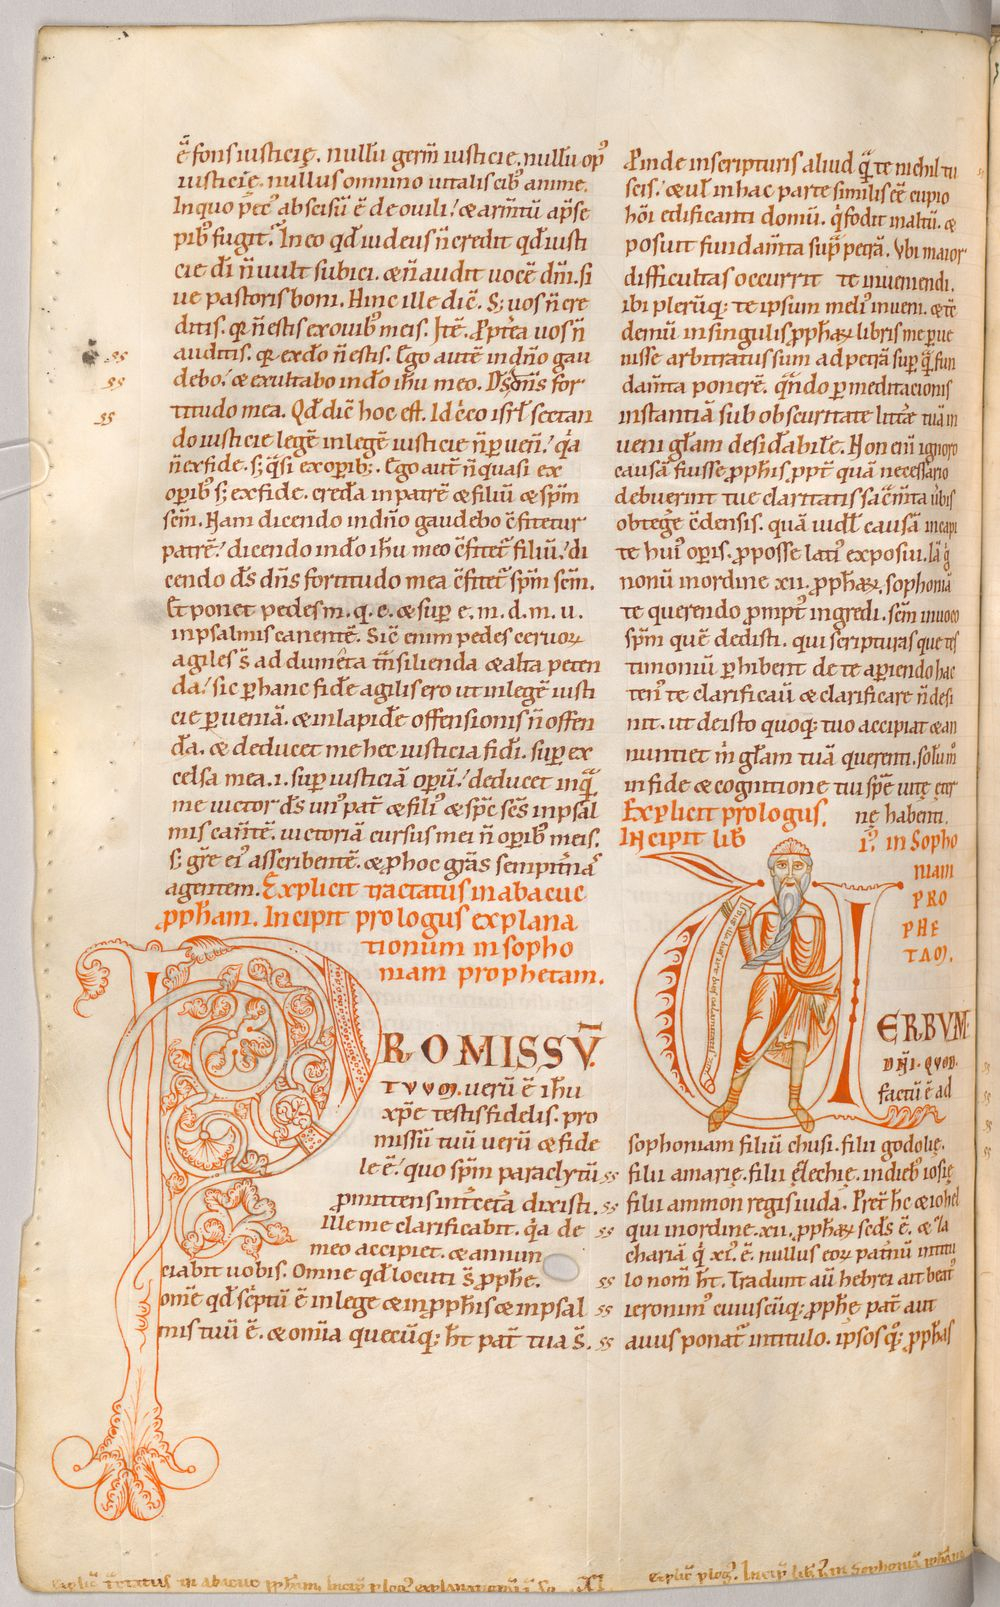 ē fons iusticię. nullū germ̄ iusticię. nullū op᾽
iusticię. nullus omnino uitalis cib᾽ anime.
In quo p̄cc᾽ abscisū ē de ouili. ⁊ armtū ap̄se
pib᾽ fugit᾽. In eo qd̄ iudeus n̄ credit qd̄ iusti
cie dī n̄ uult subici. ⁊ n̄ audit uocē dn̄i. si
ue pastoris boni. Hinc ille dic̄. S; uos n̄ cre
ditis. q̄ n̄ estis ex ouib᾽ meis. Itē. Ppt̄ea uos n̄
auditis. q̄ ex dō n̄ estis. Ego autē in dn̄o gau
debo. ⁊ exultabo in dō ihū meo. Ds̄ dn̄s for
titudo mea. Qd̄ dic̄ hoc est. Idcc̄o isrl̄ sectan
do iusticie legē in legē iusticie n̄ puen̄. q̄a
n̄ ex fide. s; q̄si ex opib;. Ego aut̄ n̄ quasi ex
opib᾽ s; ex fide. creda in patrē ⁊ filiū ⁊ sp̄m
sc̄m. Nam dicendo in dn̄o gaudebo c̄fitetur
patrē. dicendo in dō ihū meo c̄fitet᾽ filiū. di
cendo ds̄ dn̄s fortitudo mea c̄fitet᾽ sp̄m sc̄m.
Et ponet pedes m. q. c. ⁊ sup e. m. d. m. u.
in psalmis canentē. Sic̄ enim pedes ceruoꝝ
agiles s̄ ad dumeta tn̄silienda ⁊ alta peten
da. sic p hanc fidē agilis ero ut in legē iusti
cie pueniā. ⁊ in lapidē offensionis n̄ offen
da. ⁊ deducet me hec iusticia fidi. sup ex
celsa mea. i. sup iusticiā operū. deducet inq̄
me uictor ds̄ un᾽ pat̄ ⁊ fili᾽ ⁊ sp̄c sc̄s in psal
mis can̄tē. uictoriā cursus mei n̄ opib᾽ meis.
s; gr̄e ei᾽ asscribentē. ⁊ p hoc gr̄as sempit̄nas
agentem. Explicit tractatus in abacuc
ꝓph̄am. Incipit prologus explana
tionum in sopho
niam prophetam.
PROMISSŪ
TVVM. uerū ē ihū
xp̄e testis fidelis. pro
missū tuū uerū ⁊ fide
le ē. quo sp̄m paraclytū
ꝓmittens int̄ cet̄a dixisti.
Ille me clarificabit. q̄a de
meo accipiet. ⁊ annun
ciabit uobis. Omne qd̄ locuti s̄ ꝓphe.
om̄e qd̄ sc̄ptū ē in lege ⁊ in ꝓph̄is ⁊ in psal
mis tuū ē. ⁊ om̄ia quecūq; ht̄ pat̄ tua s̄.
Pinde in scripturis aliud q̄ te nichil tu
scis. ⁊ ul̄ in hac parte similis ēē cupio
hōi edificanti domū. q̄ fodit in altū. ⁊
posuit fundam̄ta sup petrā. Vbi maior
difficultas occurrit te inueniendi.
ibi plerūq; te ipsum meli᾽ inueni. ⁊ t̄c
demū in singulis ꝓph̄aꝝ libris me pue
nisse arbitratus sum ad petrā sup q̄ fun
dam̄ta ponerē. q̄ndo p meditacionis
instantiā sub obscuritate litt̄ę tuā in
ueni gl̄am desid̄abilē. Non enī ignoro
causā fuisse ꝓph̄is ꝓpt̄ quā necessario
debuerint tue claritatis sac̄m̄ta ūbis
obtege c̄densis. quā iudl̄ causā in capi
te hui᾽ opis. ꝓ posse lati᾽ exposui. Iā q̄
nonū in ordine xii. ꝓph̄aꝝ. sophoniā
te querendo prompt᾽ ingredi. sc̄m inuoco
sp̄m quē dedisti. qui scripturas que tes
timoniū phibent de te aperiendo hac
ten᾽ te clarificauī ⁊ clarificare n̄ desi
nit. ut de isto quoq; tuo accipiat ⁊ an
nuntiet m̄ gl̄am tuā querenti. solum᾽
in fide ⁊ cognitione tui spē uitę et̄
Explicit prologus. nę habenti.
Incipit lib̄ I᾽. in Sopho
niam
PRO
PHE
TAM.
VERBVM
DN̄I. QVOD
factū ē ad
sophoniam filiū chusi. filii godolię.
filii amarię. filii ęlechię. in dieb᾽ iosię
filii ammon regis iuda. Pret̄ hc̄ ⁊ iohel
qui in ordine. xii. ꝓph̄aꝝ sc̄ds ē. ⁊ za
chariā q̄ xi᾽. ē. nullus eoꝝ patrnū in titu
lo nom̄ ht̄. Tradunt aū hebrei ait beat᾽
ieronim᾽ cuiuscūq; ꝓphę pat̄ aut
auus ponat᾽ in titulo. ipsos q; ꝓph̄as
Explic̄ t̄ctatus in abacuc ꝓph̄am. Incip̄ plog᾽ explanationū ī so XI
Explic̄ plog᾽. Incip̄ lib̄ I᾽. in Sophoniā ꝓph̄am